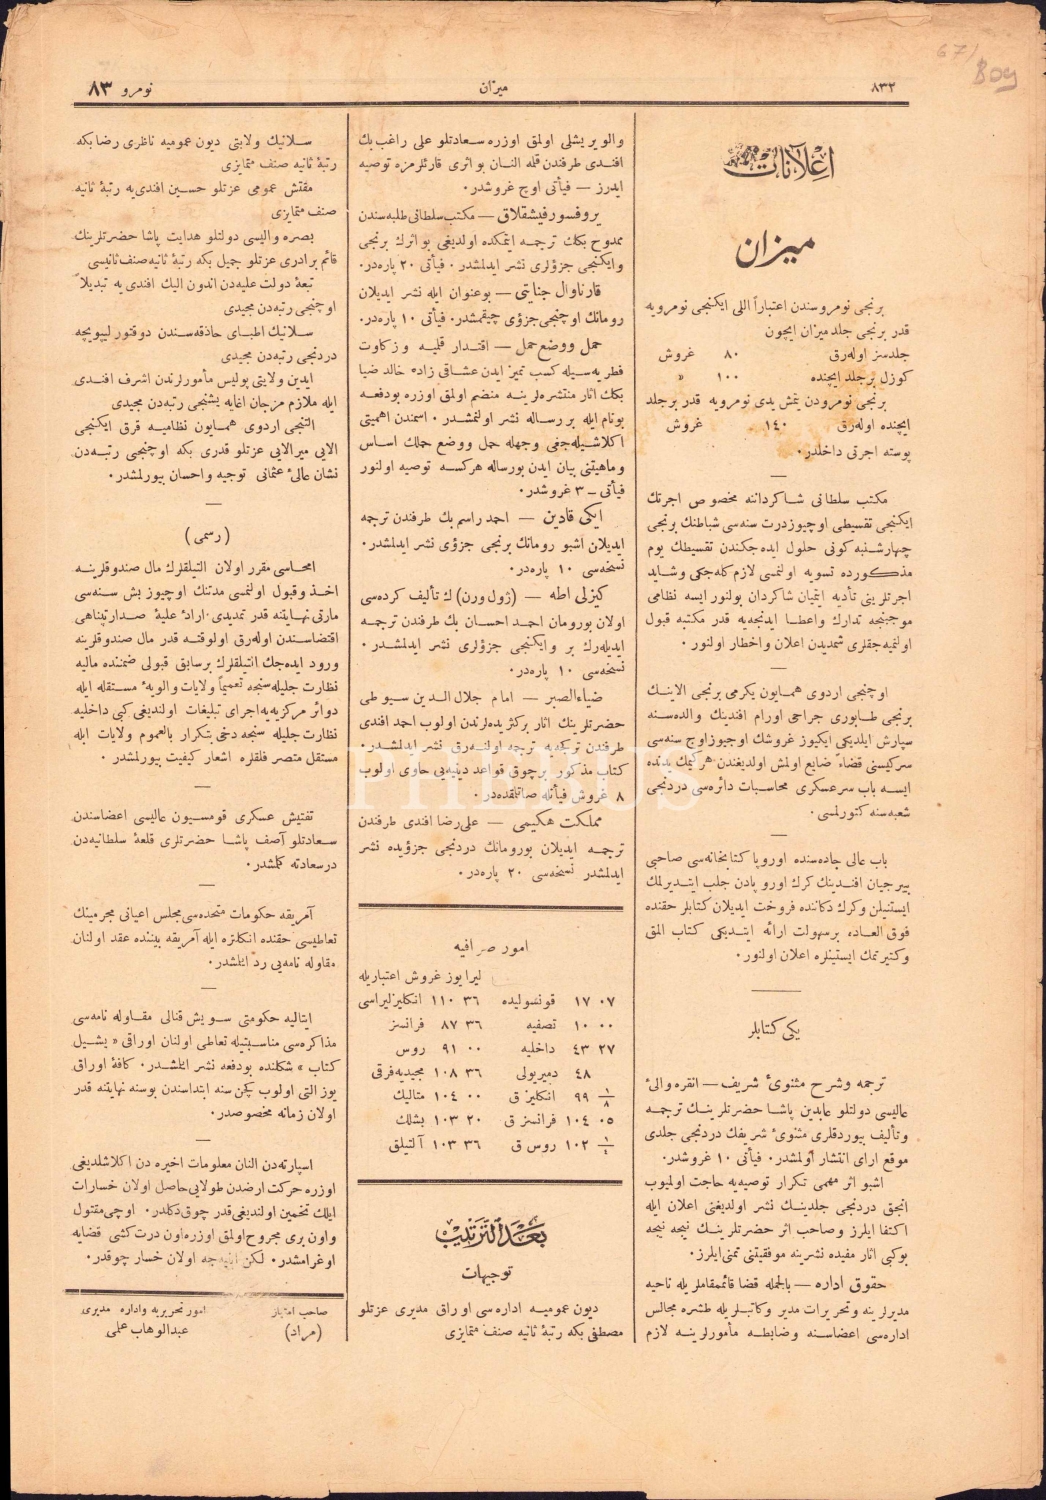 ٨٣٢
ميزان
نومرو ٨٣
اعلانات
ميزان
برنجى نومروسندن اعتباراً اللى ايكنجى نومرويه
قدر برنجى جلد ميزان ايچون
جلدسز اوله‌رق ٨٠ غروش
كوزل بر جلد ايچنده ١٠٠ »
برنجى نومرودن يتمش يدى نومرويه قدر بر جلد
ايچنده اوله‌رق ١٤٠ غروش
پوسته اجرتى داخلدر.
مكتب سلطانى شاكرداننه مخصوص اجرتك
ايكنجى تقسيطى اوچيوز درت سنه‌سى شباطنك برنجى
چهارشنبه كونى حلول ايده‌جكندن تقسيطك يوم
مذكورده تسويه اولنمسى لازم كله‌جكى وشايد
اجرتلرينى تأديه ايتميان شاكردان بولنور ايسه نظامى
موجبنجه تدارك واعطا ايدنجه‌يه قدر مكتبه قبول
اولنميه‌جقلرى شمديدن اعلان واخطار اولنور.
اوچنجى اردوى همايون يكرمى برنجى الاينك
برنجى طابورى جراحى اورام افندينك والده‌سنه
سپارش ايلديكى ايكيوز غروشك اوچيوز اوچ سنه‌سى
سركيسنى قضاءً ضايع اولمش اولديغندن هر كيمك يدنده
ايسه باب سرعسكرى محاسبات دائره‌سى دردنجى
شعبه‌سنه كتورلمسى.
باب عالى جاده‌سنده اوروپا كتابخانه‌سى صاحبى
بيرجيان افندينك كرك اوروپادن جلب ايتديرلمك
ايستنيلن وكرك دكاننده فروخت ايديلان كتابلر حقنده
فوق العاده بر سهولت ارائه ايتديكى كتاب المق
وكتيرتمك ايستينلره اعلان اولنور.
يكى كتابلر
ترجمه وشرح مثنوئ شريف — انقره والئ
عاليسى دولتلو عابدين پاشا حضرتلرينك ترجمه
وتأليف بيوردقلرى مثنوئ شريفك دردنجى جلدى
موقع اراى انتشار اولمشدر. فيأتى ١٠ غروشدر.
اشبو اثر مهمى تكرار توصيه‌يه حاجت اولميوب
انجق دردنجى جلدينك نشر اولديغنى اعلان ايله
اكتفا ايلرز وصاحب اثر حضرتلرينك نيجه نيجه
بوكبى اثار مفيده نشرينه موفقيتنى تمنى ايلرز.
حقوق اداره — بالجمله قضا قائممقاملريله ناحيه
مديرلرينه وتحريرات مدير وكاتبلريله طشره مجالس
اداره‌سى اعضاسنه وضابطه مأمورلرينه لازم
والويريشلى اولمق اوزره سعادتلو على راغب بك
افندى طرفندن قلمه النان بو اثرى قارئلرمزه توصيه
ايدرز — فيأتى اوچ غروشدر.
پروفسور فيشقلاق — مكتب سلطانى طلبه‌سندن
ممدوح بكك ترجمه ايتمكده اولديغى بو اثرك برنجى
وايكنجى جزؤلرى نشر ايدلمشدر. فيأتى ٢٠ پاره‌در.
قارناوال جنايتى — بو عنوان ايله نشر ايديلان
رومانك اوچنجى جزؤى چيقمشدر. فيأتى ١٠ پاره‌در.
حمل ووضع حمل — اقتدار قلميه وزكاوت
فطريه‌سيله كسب تميز ايدن عشاقى زاده خالد ضيا
بكك اثار منتشره‌لرينه منضم اولمق اوزره بودفعه
بونام ايله بر رساله نشر اولنمشدر. اسمندن اهميتى
اكلاشيله‌جغى وجهله حمل ووضع حملك اساس
وماهيتنى بيان ايدن بو رساله هركسه توصيه اولنور
فيأتى – ٣ غروشدر.
ايكى قادين — احمد راسم بك طرفندن ترجمه
ايديلان اشبو رومانك برنجى جزؤى نشر ايدلمشدر.
نسخه‌سى ١٠ پاره‌در.
كيزلى اطه — (ژول ورن) ك تأليف كرده‌سى
اولان بو رومان احمد احسان بك طرفندن ترجمه
ايديله‌رك بر وايكنجى جزؤلرى نشر ايدلمشدر.
نسخه‌سى ١٠ پاره‌در.
ضياءالصبر — امام جلال الدين سيوطى
حضرتلرينك اثار بركزيده‌لرندن اولوب احمد افندى
طرفندن تركجه‌يه ترجمه اولنه‌رق نشر ايدلمشدر.
كتاب مذكور بر چوق قواعد دينيه‌يى حاوى اولوب
٨ غروش فيأتله صاتلمقده‌در.
مملكت هكيمى — على رضا افندى طرفندن
ترجمه ايديلان بو رومانك دردنجى جزؤيده نشر
ايدلمشدر نسخه‌سى ٢٠ پاره‌در.
امور صرافيه
ليرا يوز غروش اعتباريله
٠٧ ١٧ قونسوليده ٣٦ ١١٠ انكليز ليراسى
٠٠ ١٠ تصفيه ٣٦ ٨٧ فرانسز
٢٧ ٤٣ داخليه ٠٠ ٩١ روس
٤٨ دميريولى ٣٦ ١٠٨ مجيديه فرقى
١/٨ ٩٩ انكليز ق ٠٠ ١٠٤ متاليك
٠٥ ١٠٤ فرانسز ق ٢٠ ١٠٣ بشلك
١/٤ ١٠٢ روس ق ٣٦ ١٠٣ آلتيلق
بعد الترتيب
توجيهات
ديون عموميه اداره‌سى اوراق مديرى عزتلو
مصطفى بكه رتبهٔ ثانيه صنف متمايزى
سلانيك ولايتى ديون عموميه ناظرى رضا بكه
رتبهٔ ثانيه صنف متمايزى
مفتش عمومى عزتلو حسين افندى‌يه رتبهٔ ثانيه
صنف متمايزى
بصره واليسى دولتلو هدايت پاشا حضرتلرينك
قائم برادرى عزتلو جميل بكه رتبهٔ ثانيه صنف ثانيسى
تبعهٔ دولت عليه‌دن اندون اليك افندى‌يه تبديلاً
اوچنجى رتبه‌دن مجيدى
سلانيك اطباى حاذقه‌سندن دوقتور ليپويچه
دردنجى رتبه‌دن مجيدى
ايدين ولايتى پوليس مأمورلرندن اشرف افندى
ايله ملازم مرجان اغايه بشنجى رتبه‌دن مجيدى
التنجى اردوى همايون نظاميه قرق ايكنجى
الايى ميرالايى عزتلو قدرى بكه اوچنجى رتبه‌دن
نشان عالئ عثمانى توجيه واحسان بيورلمشدر.
(رسمى)
امحاسى مقرر اولان التيلقلرك مال صندوقلرينه
اخذ وقبول اولنمسى مدتنك اوچيوز بش سنه‌سى
مارتى نهايتنه قدر تمديدى ارادهٔ عليهٔ صدارتپناهى
اقتضاسندن اوله‌رق اولوقته قدر مال صندوقلرينه
ورود ايده‌جك التيلقلرك بر سابق قبولى ضمننده ماليه
نظارت جليله‌سنجه تعميماً ولايات والويهٔ مستقله ايله
دوائر مركزيه‌يه اجراى تبليغات اولنديغى كبى داخليه
نظارت جليله سنجه دخى بتكرار بالعموم ولايات ايله
مستقل متصرفلقلره اشعار كيفيت بيورلمشدر.
تفتيش عسكرى قومسيون عاليسى اعضاسندن
سعادتلو آصف پاشا حضرتلرى قلعهٔ سلطانيه‌دن
درسعادته كلمشدر.
آمريقه حكومات متحده‌سى مجلس اعيانى مجرمينك
تعاطيسى حقنده انكلتره ايله آمريقه بيننده عقد اولنان
مقاوله نامه‌يى رد ائلمشدر.
ايتاليه حكومتى سويش قنالى مقاوله نامه‌سى
مذاكره‌سى مناسبتيله تعاطى اولنان اوراقى «يشيل
كتاب» شكلنده بودفعه نشر ائلمشدر. كافهٔ اوراق
يوز التى اولوب كچن سنه ابتداسندن بوسنه نهايتنه قدر
اولان زمانه مخصوصدر.
اسپارته‌دن النان معلومات اخيره دن اكلاشلديغى
اوزره حركت ارضدن طولايى حاصل اولان خسارات
ايلك تخمين اولنديغى قدر چوق دكلدر. اوچى مقتول
واون برى مجروح اولمق اوزره اون درت كشى قضايه
اوغرامشدر. لكن ابنيه‌جه اولان خسار چوقدر.
صاحب امتياز
(مراد)
امور تحريريه واداره مديرى
عبدالوهاب علمى
PHEBUS